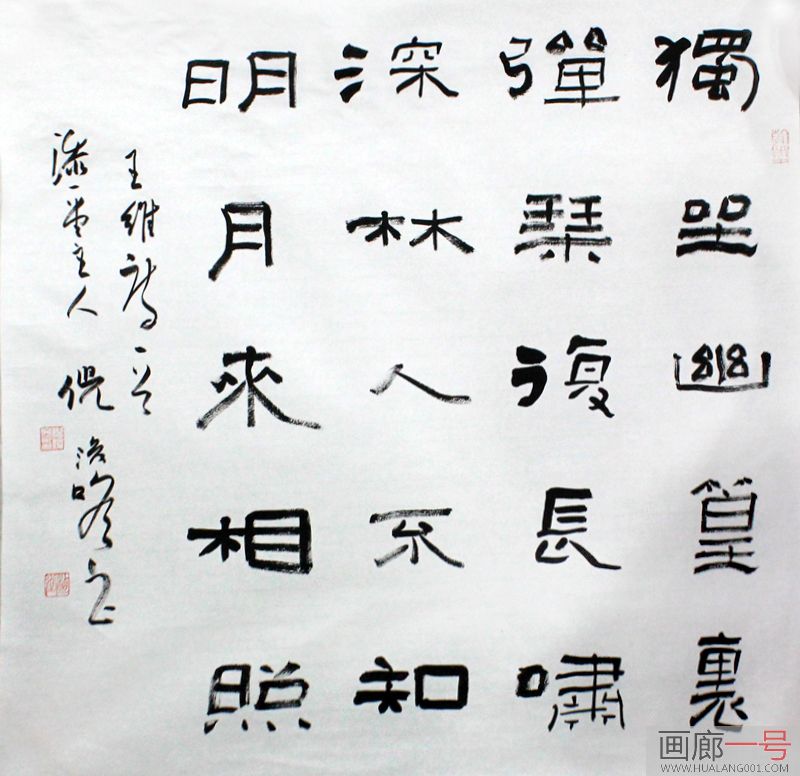 獨坐幽篁裏
彈琹復長嘯
深林人不知
明月來相照
王維詩一首
主人 倪
画廊一号
WWW.HUALANG001.COM